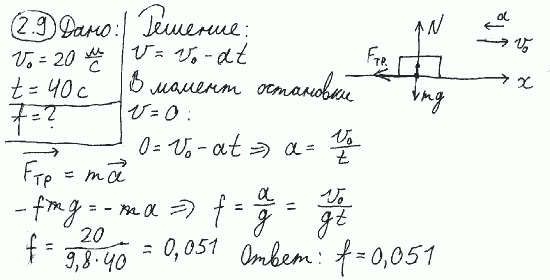 2.9 Дано:
v₀ = 20 м/с
t = 40 с
f = ?
Решение:
v = v₀ - at
В момент остановки
v = 0:
0 = v₀ - at ⇒ a = v₀/t
F⃗тр = ma⃗
-fmg = -ma ⇒ f = a/g = v₀/gt
f = 20/(9,8·40) = 0,051
Ответ: f = 0,051
N
a
v₀
Fтр
mg
x